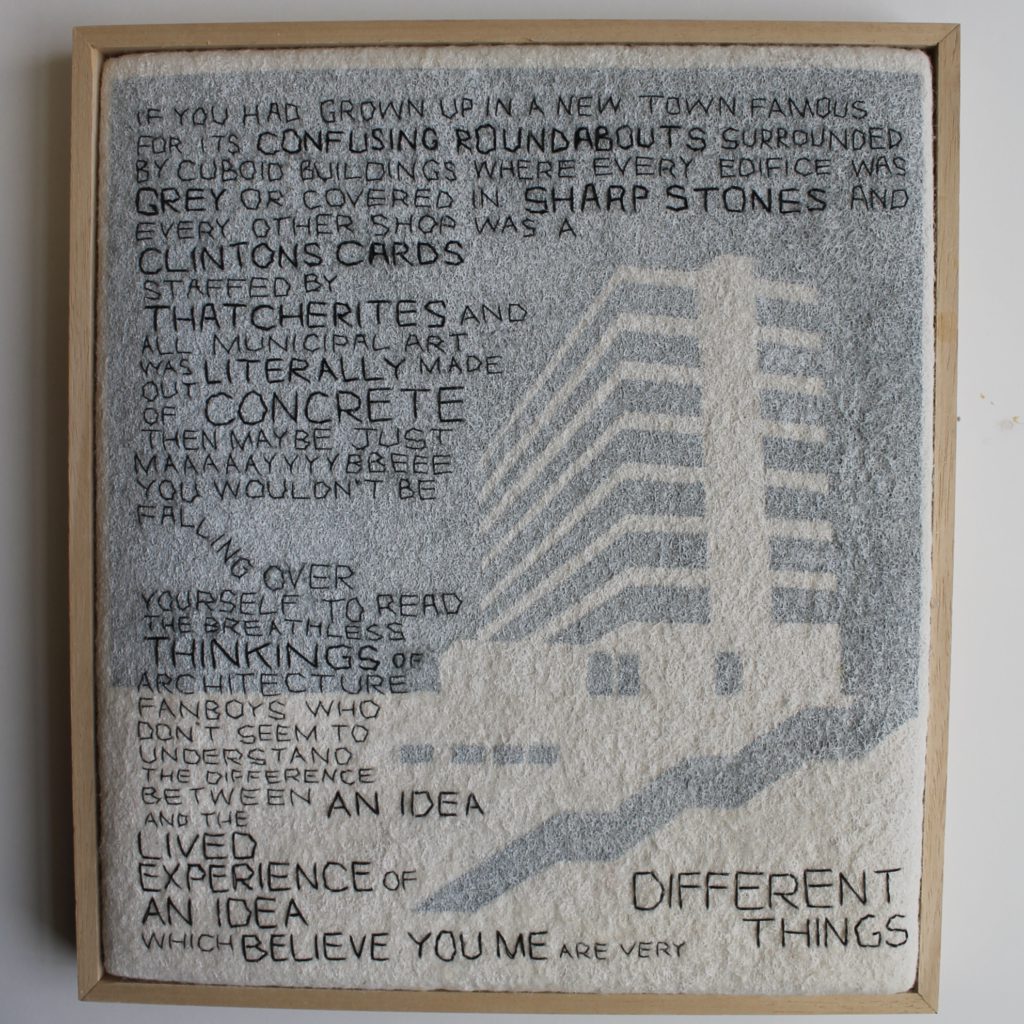 IF YOU HAD GROWN UP IN A NEW TOWN FAMOUS
FOR ITS CONFUSING ROUNDABOUTS SURROUNDED
BY CUBOID BUILDINGS WHERE EVERY EDIFICE WAS
GREY OR COVERED IN SHARP STONES AND
EVERY OTHER SHOP WAS A
CLINTONS CARDS
STAFFED BY
THATCHERITES AND
ALL MUNICIPAL ART
WAS LITERALLY MADE
OUT
OF CONCRETE
THEN MAYBE JUST
MAAAAAYYYYBBEEEE
YOU WOULDN'T BE
FALLING OVER
YOURSELF TO READ
THE BREATHLESS
THINKINGS OF
ARCHITECTURE
FANBOYS WHO
DON'T SEEM TO
UNDERSTAND
THE DIFFERENCE
BETWEEN AN IDEA
AND THE
LIVED
EXPERIENCE OF
AN IDEA
WHICH BELIEVE YOU ME ARE VERY
DIFFERENT
THINGS